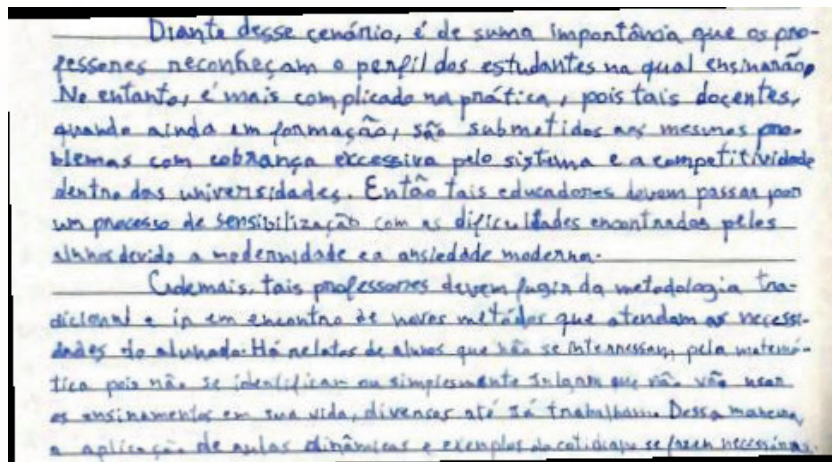 Diante desse cenário, é de suma importância que os pro-
fessores reconheçam o perfil dos estudantes na qual ensinarão.
No entanto, é mais complicado na prática, pois tais docentes,
quando ainda em formação, são submetidos aos mesmos pro-
blemas com cobrança excessiva pelo sistema e a competitividade
dentro das universidades. Então tais educadores devem passar por
um processo de sensibilização com as dificuldades encontradas pelos
alunos devido a modernidade e a ansiedade moderna.
Ademais, tais professores devem fugir da metodologia tra-
dicional e ir em encontro de novos métodos que atendam as necessi-
dades do alunado. Há relatos de alunos que não se interessam pela matemá-
tica pois não se identificam ou simplesmente julgam que não vão usar
os ensinamentos em sua vida, diversos até já trabalham. Dessa maneira,
a aplicação de aulas dinâmicas e exemplos do cotidiano se fazem necessárias.